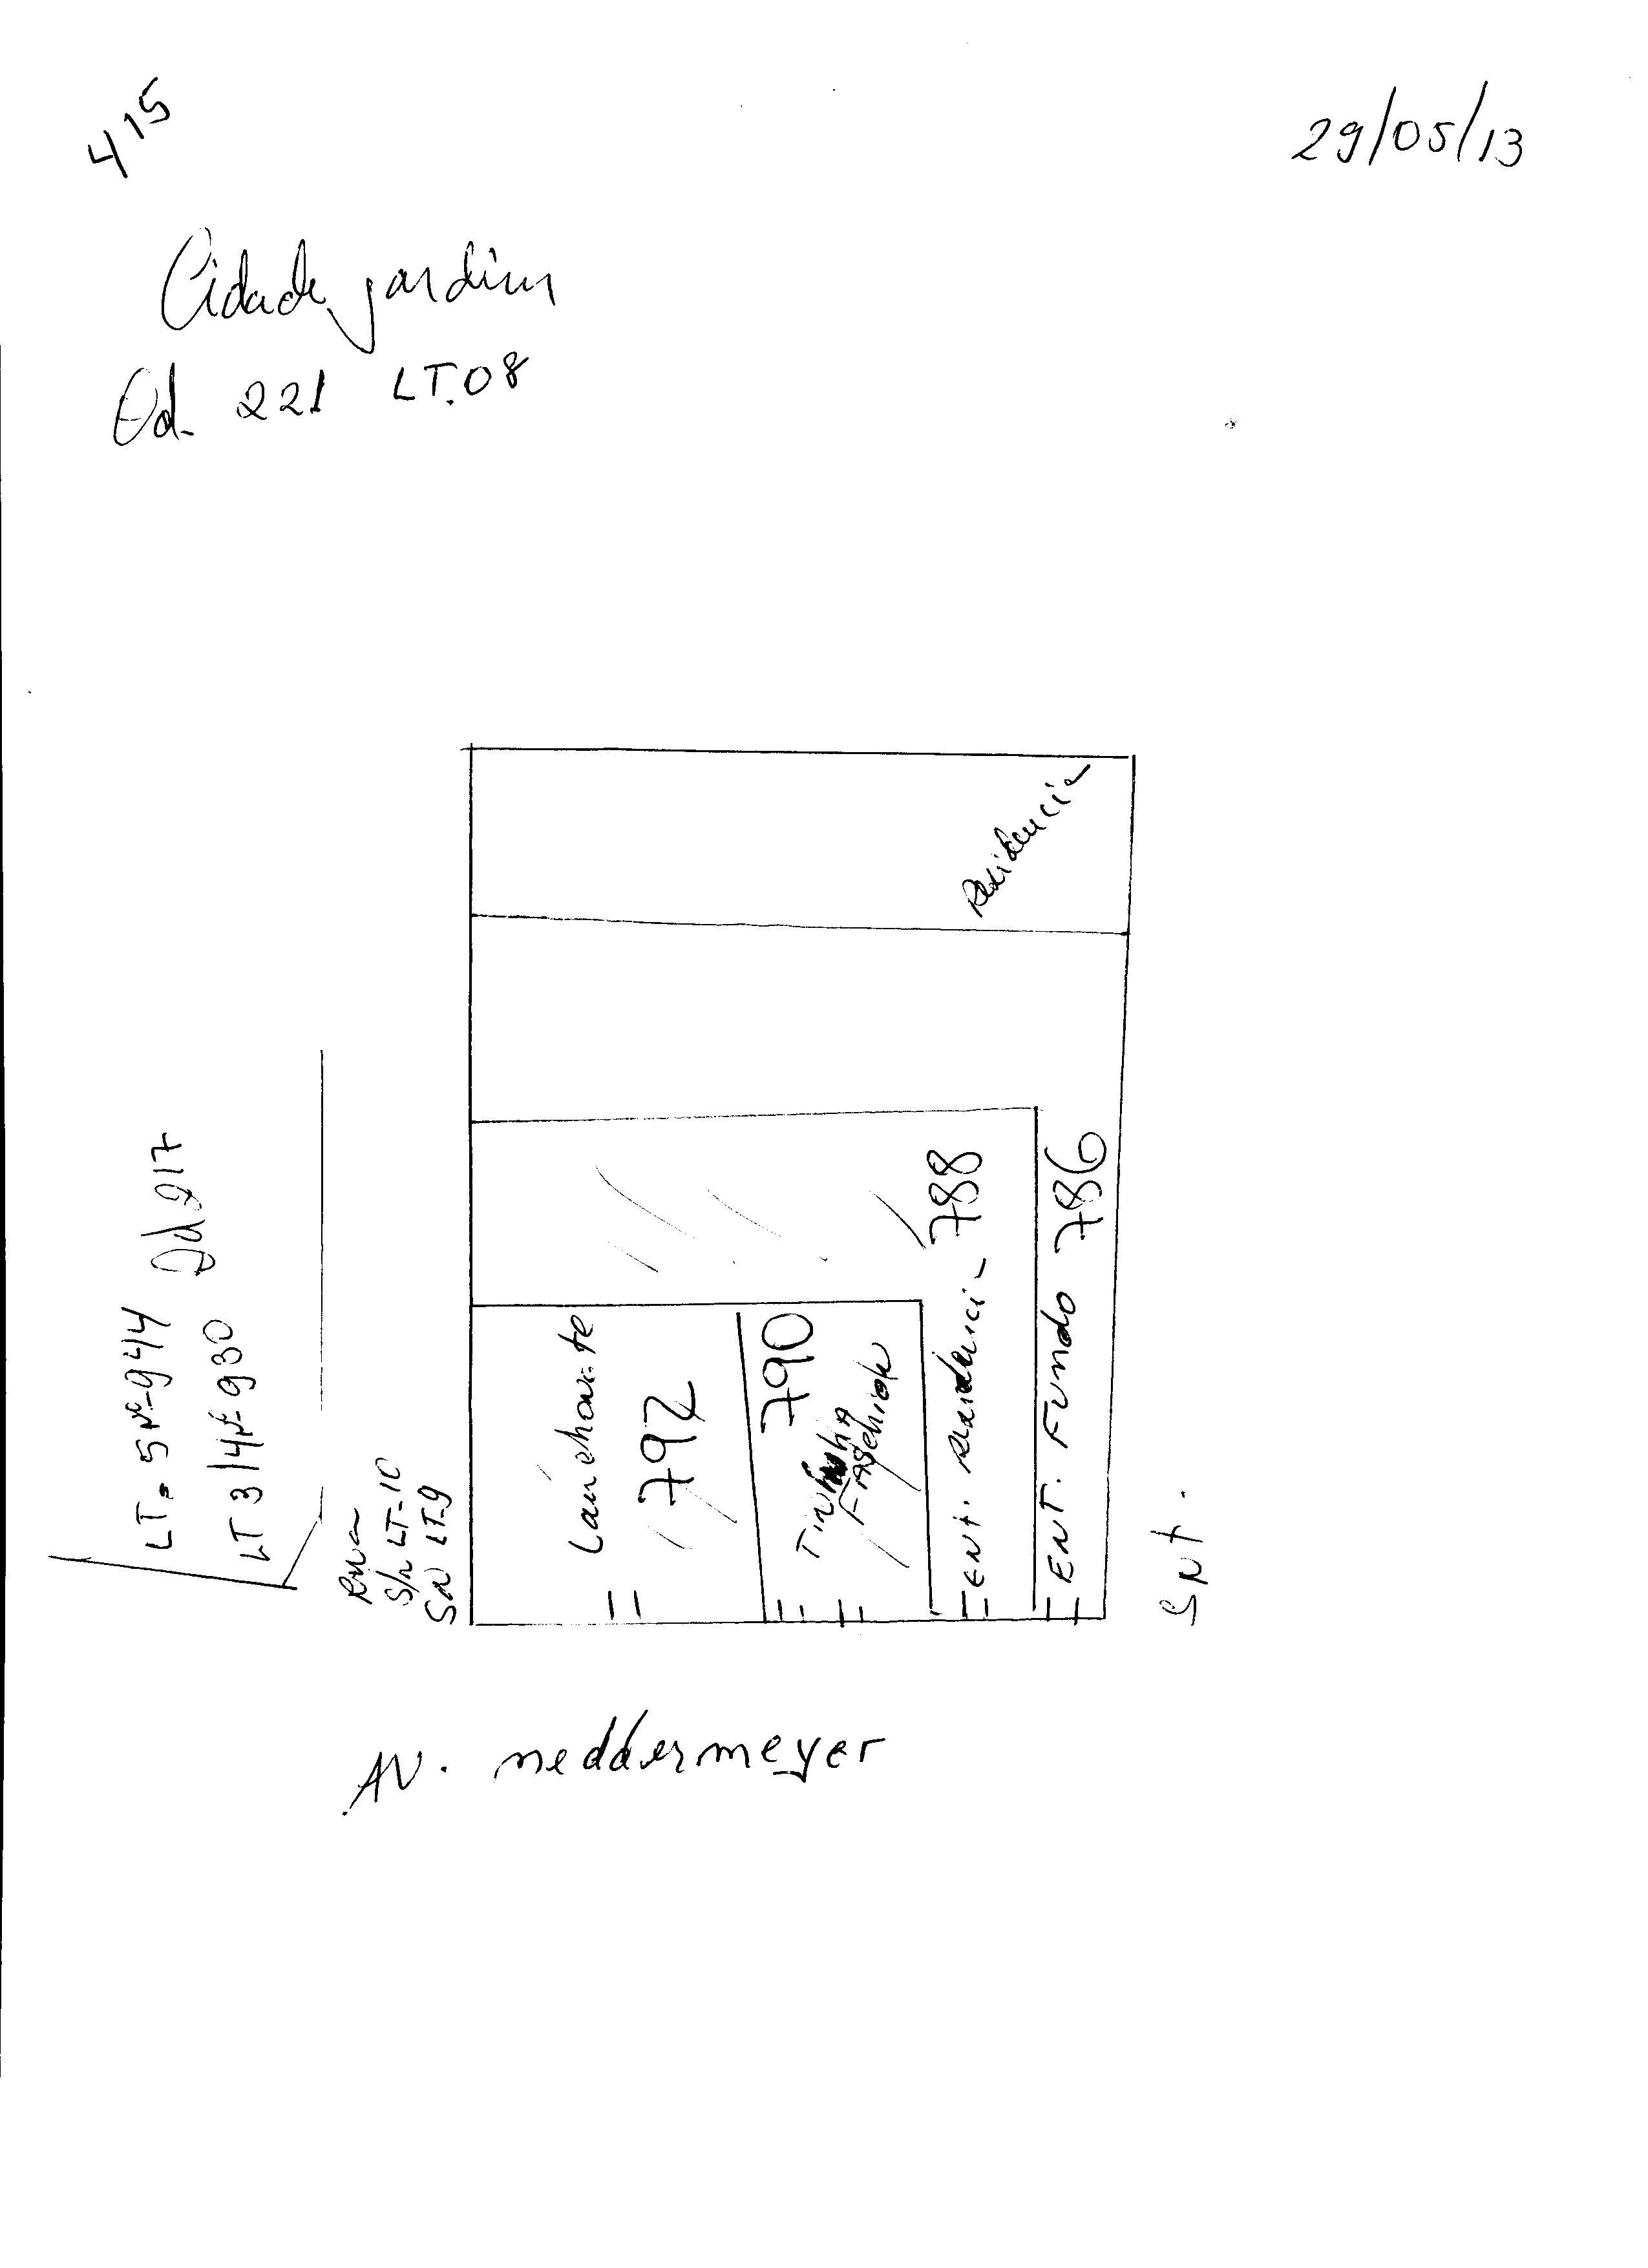 415
29/05/13
Cidade jardim
Qd. 221 LT.08
Residencia
LT. 5 Nº-944
LT 3/4 Nº-930 Qd 217
Rua
S/n LT-10
SN LT-9
Lanchonete
792
790
Ent. Residencia 788
ENT. Fundo 786
SNT.
AV. neddermeyer